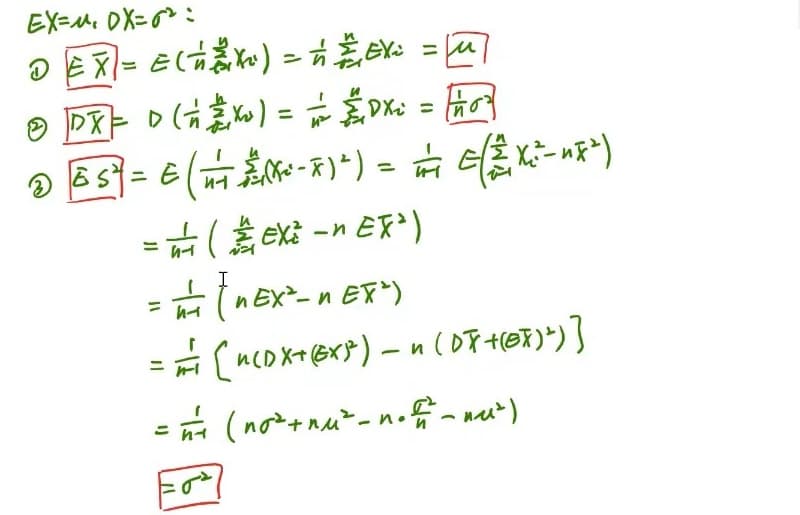 EX=μ, DX=σ²:
① E X̄ = E(1/n ∑ᵢ₌₁ⁿ Xᵢ) = 1/n ∑ᵢ₌₁ⁿ EXᵢ = μ
② DX̄ = D(1/n ∑ᵢ₌₁ⁿ Xᵢ) = 1/n² ∑ᵢ₌₁ⁿ DXᵢ = 1/n σ²
③ E S² = E(1/(n-1) ∑ᵢ₌₁ⁿ (Xᵢ-X̄)²) = 1/(n-1) E(∑ᵢ₌₁ⁿ Xᵢ² - nX̄²)
= 1/(n-1) (∑ᵢ₌₁ⁿ EXᵢ² - n EX̄²)
= 1/(n-1) (nEX² - n EX̄²)
= 1/(n-1) [n(DX+(EX)²) - n(DX̄+(EX̄)²)]
= 1/(n-1) (nσ²+nμ² - n·σ²/n - nμ²)
= σ²